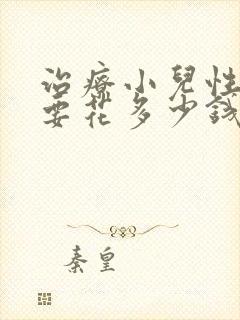 治療小兒性
要花多少錢
秦皇